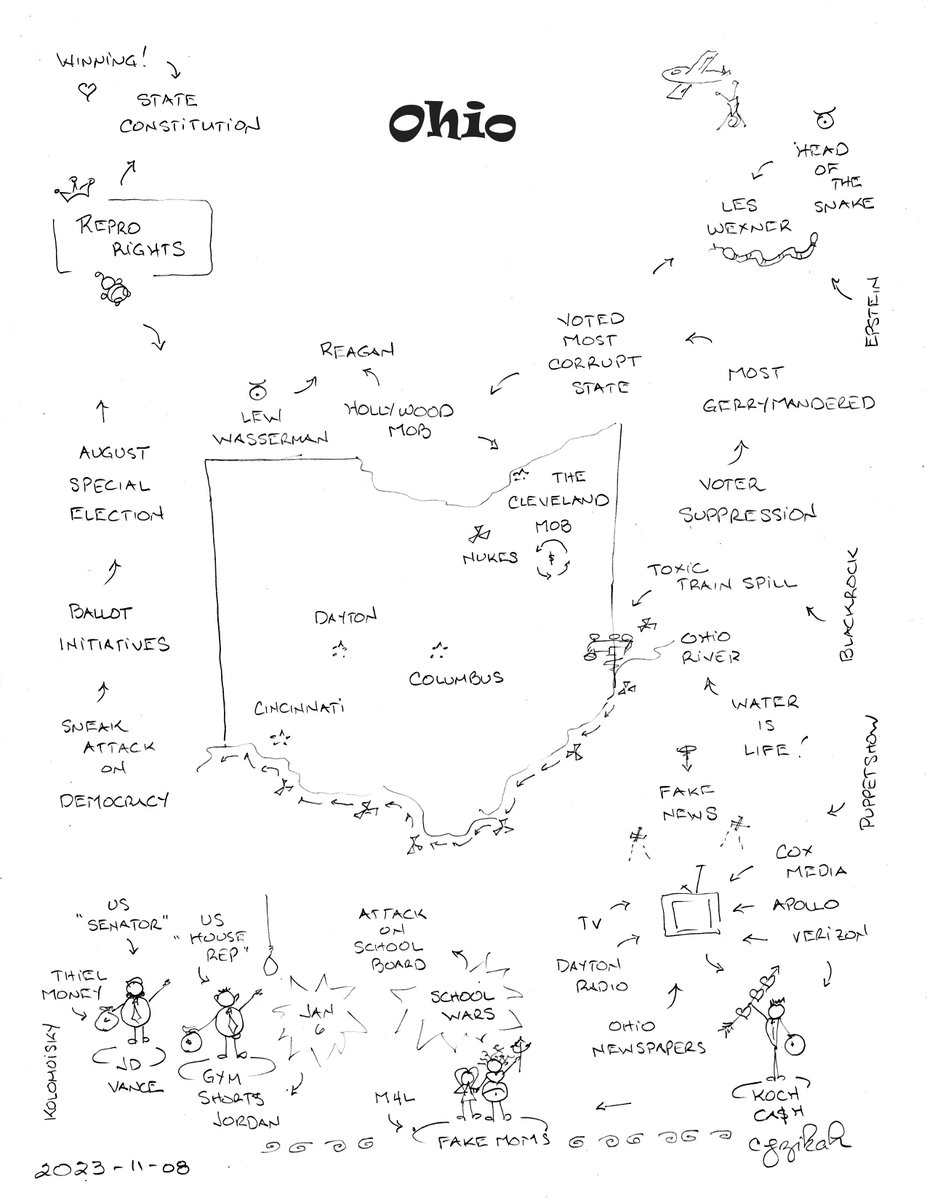 Ohio
WINNING!
STATE
CONSTITUTION
REPRO
RIGHTS
HEAD
OF
THE
SNAKE
LES
WEXNER
EPSTEIN
VOTED
MOST
CORRUPT
STATE
MOST
GERRYMANDERED
VOTER
SUPPRESSION
REAGAN
LEW
WASSERMAN
HOLLYWOOD
MOB
AUGUST
SPECIAL
ELECTION
BALLOT
INITIATIVES
SNEAK
ATTACK
ON
DEMOCRACY
THE
CLEVELAND
MOB
$
NUKES
TOXIC
TRAIN SPILL
BLACKROCK
OHIO
RIVER
WATER
IS
LIFE!
DAYTON
COLUMBUS
CINCINNATI
FAKE
NEWS
PUPPETSHOW
COX
MEDIA
APOLLO
VERIZON
TV
DAYTON
RADIO
OHIO
NEWSPAPERS
US
"SENATOR"
THIEL
MONEY
JD
VANCE
KOLOMOISKY
US
"HOUSE
REP"
GYM
SHORTS
JORDAN
JAN
6
ATTACK
ON
SCHOOL
BOARD
SCHOOL
WARS
M4L
FAKE MOMS
KOCH
CA$H
2023-11-08